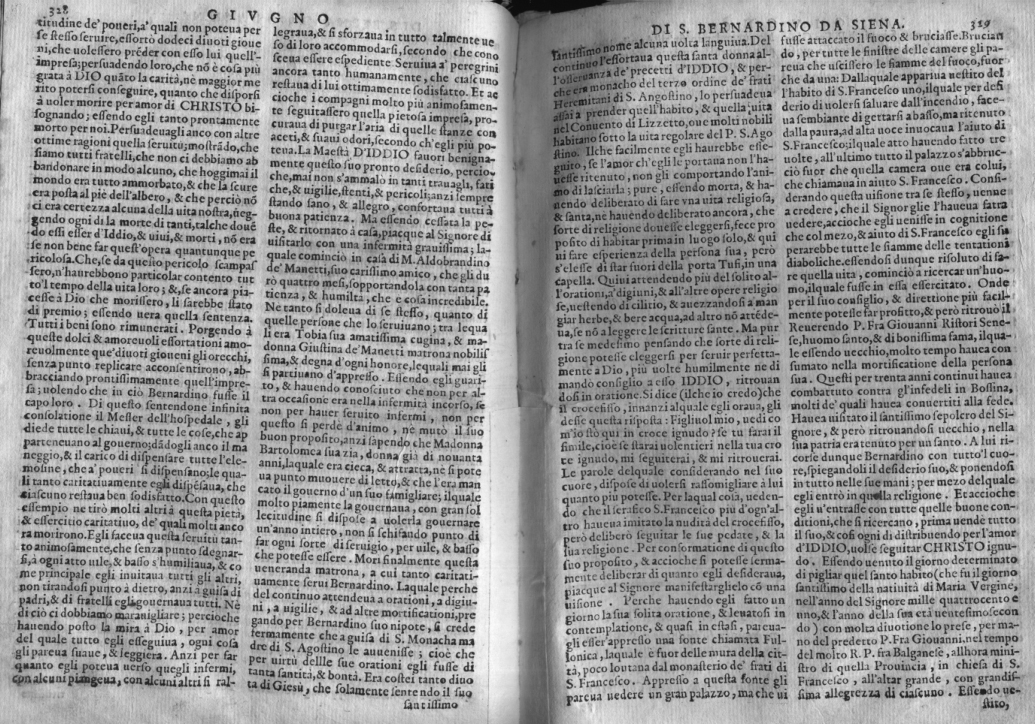 328
GIVGNO
titudine de' poueri, a' quali non poteua per
se stesso seruire, essortò dodeci diuoti gioue
ni, che uolessero prēder con esso lui quell'-
impresa; persuadendo loro, che nō è cosa più
grata à DIO quāto la carità, nè maggior me
rito potersi conseguire, quanto che disporsi
à uoler morire per amor di CHRISTO bi-
sognando; essendo egli tanto prontamente
morto per noi. Persuadeuagli anco con altre
ottime ragioni quella seruitù; mostrādo, che
siamo tutti fratelli, che non ci debbiamo ab
bandonare in modo alcuno, che hoggimai il
mondo era tutto ammorbato, & che la scure
era posta al piè dell'albero, & che perciò nō
ci era certezza alcuna della uita nostra, ueg-
gendo ogni dì la morte di tanti, talche douē
do essi esser d'Iddio, & uiui, & morti, nō era
se non bene far quest'opera quantunque pe
ricolosa. Che, se da questo pericolo scampas
sero, n'haurebbono particolar contento tut
to'l tempo della uita loro; &, se ancora pia-
cesse à Dio che morissero, li sarebbe stato
di premio; essendo uera quella sentenza.
Tutti i beni sono rimunerati. Porgendo à
queste dolci & amoreuoli essortationi amo-
reuolmente que' diuoti gioueni gli orecchi,
senza punto replicare acconsentirono, ab-
bracciando prontissimamente quell'impre-
sa; uolendo che in ciò Bernardino fusse il
capo loro. Di questo sentendone infinita
consolatione il Messer dell'hospedale, gli
diede tutte le chiaui, & tutte le cose, che ap
parteneuano al gouerno; dādogli anco il ma
neggio, & il carico di dispensare tutte l'ele-
mosine, che a' poueri si dispensano, le qua-
li tanto caritatiuamente egli dispēsaua, che
ciascuno restaua ben sodisfatto. Con questo
essempio ne tirò molti altri à questa pietà,
& essercitio caritatiuo, de' quali molti anco
ra morirono. Egli faceua questa seruitù tan-
to animosamente, che senza punto sdegnar-
si, à ogni atto uile, & basso s'humiliaua, & co
me principale egli inuitaua tutti gli altri,
non tirandosi punto à dietro, anzi à guisa di
padri, & di fratelli egli gouernaua tutti. Nè
di ciò ci dobbiamo marauigliare; percioche
hauendo posto la mira à Dio, per amor
del quale tutto egli esseguiua, ogni cosa
gli pareua suaue, & leggiera. Anzi per far
quanto egli poteua uerso quegli infermi,
con alcuni piangeua, con alcuni altri si ral-
legraua, & si sforzaua in tutto talmente ue
so di loro accommodarsi, secondo che cono
sceua essere espediente. Seruiua a' peregrini
ancora tanto humanamente, che ciascuno
restaua di lui ottimamente sodisfatto. Et ac
cioche i compagni molto più animosamen-
te seguitassero quella pietosa impresa, pro-
curaua di purgar l'aria di quelle stanze con
aceti, & suaui odori, secondo ch'egli più po-
teua. La Maestà D'IDDIO fauorì benigna-
mente questo suo pronto desiderio, percio-
che, mai non s'ammalò in tanti trauagli, fati
che, & uigilie, stenti, & pericoli; anzi sempre
stando sano, & allegro, confortaua tutti à
buona patienza. Ma essendo cessata la pe-
ste, & ritornato à casa, piacque al Signore di
uisitarlo con una infermità grauissima; la-
quale cominciò in casa di M. Aldobrandino
de' Manetti, suo carissimo amico, che gli du
rò quattro mesi, sopportandola con tanta pa
tienza, & humiltà, che e cosa incredibile.
Ne tanto si doleua di se stesso, quanto di
quelle persone che lo seruiuano; tra lequa
li era Tobia sua amatissima cugina, & ma-
donna Giustina de' Manetti matrona nobilis
sima, & degna d'ogni honore, lequali mai gli
si partiuano d'appresso. Essendo egli guari-
to, & hauendo conosciuto che non per al-
tra occasione era nella infermità incorso, se
non per hauer seruito infermi, non per
questo si perdè d'animo, ne mutò il suo
buon proposito, anzi sapendo che Madonna
Bartolomea sua zia, donna già di nouanta
anni, laquale era cieca, & attratta, nè si pote
ua punto muouere di letto, & che l'era man
cato il gouerno d'un suo famigliare; ilquale
molto piamente la gouernaua, con gran sol
lecitudine si dispose a uolerla gouernare
un'anno intiero, non si schifando punto di
far ogni sorte di seruigio, per uile, & basso
che potesse essere. Morì finalmente questa
ueneranda matrona, a cui tanto caritati-
uamente seruì Bernardino. Laquale perche
del continuo attendeua a orationi, a digiu-
ni, a uigilie, & ad altre mortificationi, pre
gando per Bernardino suo nipote, si crede
fermamente che a guisa di S. Monacha ma
dre di S. Agostino le auuenisse; cioè che
per uirtù delle sue orationi egli fusse di
tanta santità, & bontà. Era costei tanto diuo
ta di Giesù, che solamente sentendo il suo
santissimo
DI S. BERNARDINO DA SIENA.
329
santissimo nome alcuna uolta languiua. Del
continuo l'essortaua questa santa donna al-
l'osseruanza de' precetti d'IDDIO, & per-
che era monacho del terzo ordine de' frati
Heremitani di S. Angostino, lo persuadeua
assai a prender quell'habito, & quella uita
nel Conuento di Lizzetto, oue molti nobili
habitano sotto la uita regolare del P. S. Ago
stino. Ilche facilmente egli haurebbe esse-
guito, se l'amor ch'egli le portaua non l'ha-
uesse ritenuto, non gli comportando l'ani-
mo di lasciarla; pure, essendo morta, & ha-
uendo deliberato di fare vna uita religiosa,
& santa, nè hauendo deliberato ancora, che
sorte di religione douesse eleggersi, fece pro
posito di habitar prima in luogo solo, & qui
ui fare esperienza della persona sua, però
s'elesse di star fuori della porta Tufi, in una
capella. Quiui attendendo più del solito al-
l'orationi, a' digiuni, & all'altre opere religio
se, uestendo di cilitio, & auezzandosi a man
giar herbe, & bere acqua, ad altro nō attēde-
ua, se nō a leggere le scritture sante. Ma pur
tra se medesimo pensando che sorte di reli-
gione potesse eleggersi per seruir perfetta-
mente a Dio, più uolte humilmente ne di
mandò consiglio a esso IDDIO, ritrouan
dosi in oratione. Si dice (ilche io credo) che
il crocefisso, innanzi alquale egli oraua, gli
desse questa risposta: Figliuol mio, uedi co
m'io stò quì in croce ignudo? se tu farai il
simile, cioè se starai uolentieri nella tua cro
ce ignudo, mi seguiterai, & mi ritrouerai.
Le parole delquale considerando nel suo
cuore, dispose di uolersi rassomigliare à lui
quanto più potesse. Per laqual cosa, ueden-
do che il serafico S. Francesco più d'ogn'al-
tro haueua imitato la nudità del crocefisso,
però deliberò seguitar le sue pedate, & la
sua religione. Per conformatione di questo
suo proposito, & accioche si potesse ferma-
mente deliberar di quanto egli desideraua,
piacque al Signore manifestarglielo cō una
uisione. Perche hauendo egli fatto un
giorno la sua solita oratione, & leuatosi in
contemplatione, & quasi in estasi, pareua-
gli esser'appresso una fonte chiamata Ful-
lonica, laquale è fuor delle mura della cit-
tà, poco lontana dal monasterio de' frati di
S. Francesco. Appresso a questa fonte gli
pareua uedere un gran palazzo, ma che ui
fusse attaccato il fuoco & bruciasse. Brucian
do, per tutte le finistre delle camere gli pa-
reua che uscissero le fiamme del fuoco, fuor
che da una: Dallaquale appariua uestito del
l'habito di S. Francesco uno, ilquale per desi
derio di uolersi saluare dall'incendio, face-
ua sembiante di gettarsi a basso, ma ritenuto
dalla paura, ad alta uoce inuocaua l'aiuto di
S. Francesco; ilquale atto hauendo fatto tre
uolte, all'ultimo tutto il palazzo s'abbruc-
ciò fuor che quella camera oue era colui,
che chiamaua in aiuto S. Francesco. Consi-
derando questa uisione tra se stesso, uenne
a credere, che il Signor glie l'haueua fatta
uedere, accioche egli uenisse in cognitione
che col mezo, & aiuto di S. Francesco egli su
perarebbe tutte le fiamme delle tentationi
diaboliche. essendosi dunque risoluto di fa-
re quella uita, cominciò a ricercar un'huo-
mo, ilquale fusse in essa essercitato. Onde
per il suo consiglio, & direttione più facil-
mente potesse far profitto, & però ritrouò il
Reuerendo P. Fra Giouanni Ristori Sene-
se, huomo santo, & di bonissima fama, ilqua-
le essendo uecchio, molto tempo hauea con
sumato nella mortificatione della persona
sua. Questi per trenta anni continui hauea
combattuto contra gl'infedeli in Bossina,
molti de' quali hauea conuertiti alla fede.
Hauea uisitato il santissimo sepolcro del Si-
gnore, & però ritrouandosi uecchio, nella
sua patria era tenuto per un santo. A lui ri-
corse dunque Bernardino con tutto'l cuo-
re, spiegandoli il desiderio suo, & ponendosi
in tutto nelle sue mani; per mezo delquale
egli entrò in quella religione. Et accioche
egli u'entrasse con tutte quelle buone con-
ditioni, che si ricercano, prima uendè tutto
il suo, & così ogni cosa distribuendo per l'amor
d'IDDIO, uolse seguitar CHRISTO ignu-
do. Essendo uenuto il giorno determinato
di pigliar quel santo habito (che fu il giorno
santissimo della natiuità di Maria Vergine,
nell'anno del Signore mille quattrocento e
uno, & l'anno della sua età uentesimosecon
do) con molta diuotione lo prese, per ma-
no del predetto P. Fra Giouanni. nel tempo
del molto R. P. fra Balganese, allhora mini-
stro di quella Prouincia, in chiesa di S.
Francesco, all'altar grande, con grandis-
sima allegrezza di ciascuno. Essendo ue-
stito,